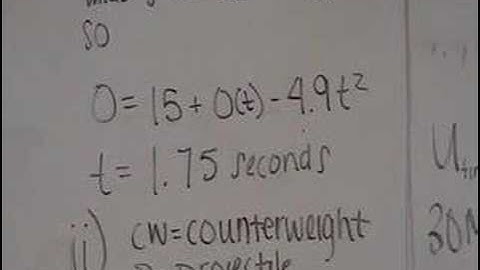 so
0 = 15 + 0(t) - 4.9t²
t = 1.75 seconds
ii) CW = counterweight
projectile
30